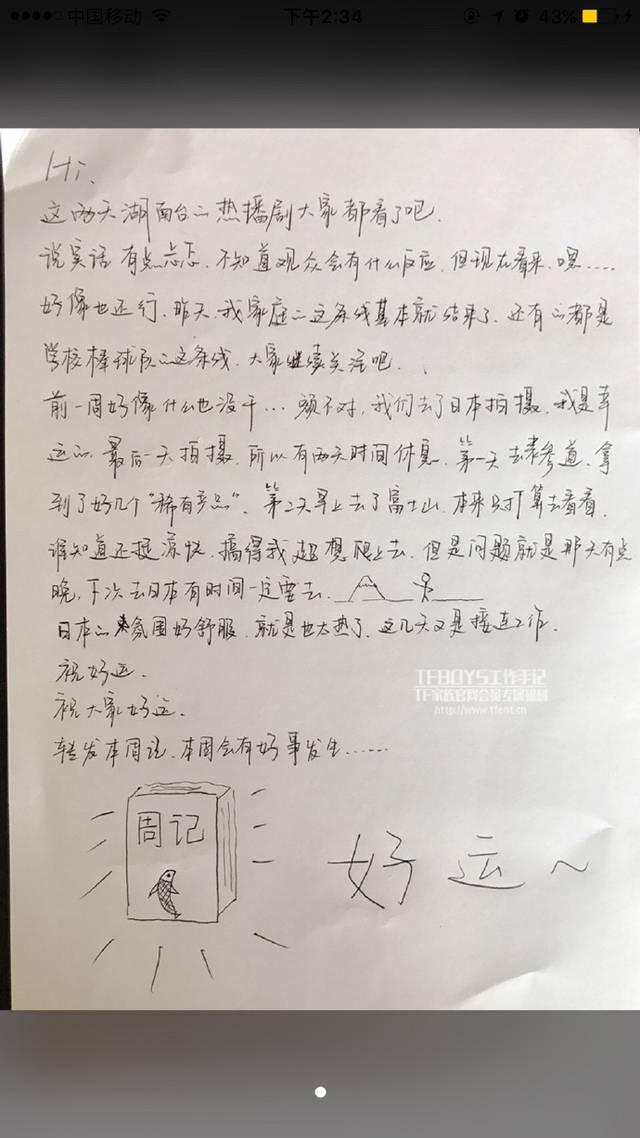 中国移动 下午2:34 43%
Hi.
这两天湖南台的热播剧大家都看了吧.
说实话 有点忐忑. 不知道观众会有什么反应. 但现在看来. 嘿……
好像也还行. 昨天. 我家庭的这条线基本就结束了. 还有的都是
学校棒球队的这条线. 大家继续关注吧.
前一周好像什么也没干… 额不对, 我们去了日本拍摄. 我是幸
运的. 最后一天拍摄. 所以有两天时间休息. 第一天去表参道. 拿
到了好几个"稀有产品". 第2天早上去了富士山. 本来只打算去看看.
谁知道还挺凉快. 搞得我超想爬上去. 但是问题就是那天有点
晚. 下次去日本有时间一定要去.
日本的氛围好舒服. 就是也太热了. 这几天又是接连工作.
祝好运.
祝大家好运.
转发本周记. 本周会有好事发生……
TFBOYS工作手记
TF家族官网会员专属福利
http://www.tfent.cn
周记
好运~